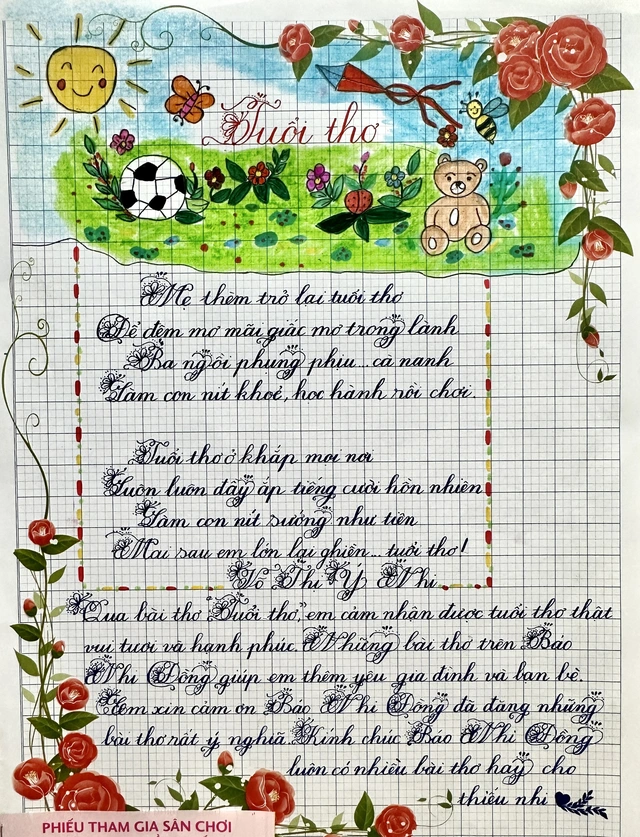 Tuổi thơ
Mẹ thèm trở lại tuổi thơ
Để đêm mơ mãi giấc mơ trong lành
Ba ngồi phụng phịu... cả nanh
Làm con nít khoẻ, học hành rồi chơi.
Tuổi thơ ở khắp mọi nơi
Luôn luôn đầy ắp tiếng cười hồn nhiên
Làm con nít sướng như tiên
Mai sau em lớn lại ghiền... tuổi thơ!
Võ Thị Ý Nhi
Qua bài thơ "Tuổi thơ," em cảm nhận được tuổi thơ thật
vui tươi và hạnh phúc. Những bài thơ trên Báo
Nhi Đồng giúp em thêm yêu gia đình và bạn bè.
Em xin cảm ơn Báo Nhi Đồng đã đăng những
bài thơ rất ý nghĩa. Kính chúc Báo Nhi Đồng
luôn có nhiều bài thơ hay cho
thiếu nhi
PHIẾU THAM GIA SÂN CHƠI